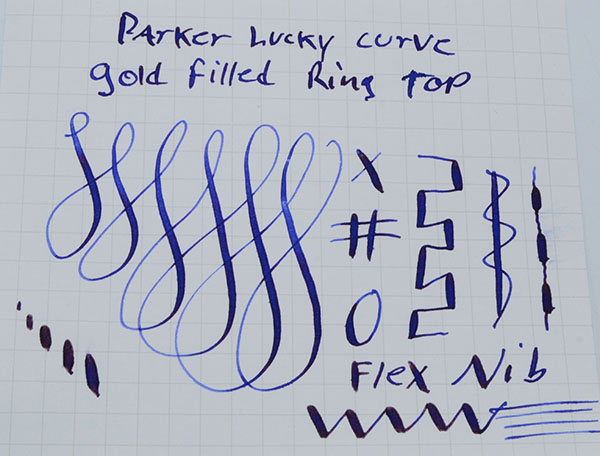 Parker Lucky Curve
gold filled Ring Top
X
#
O
Flex Nib